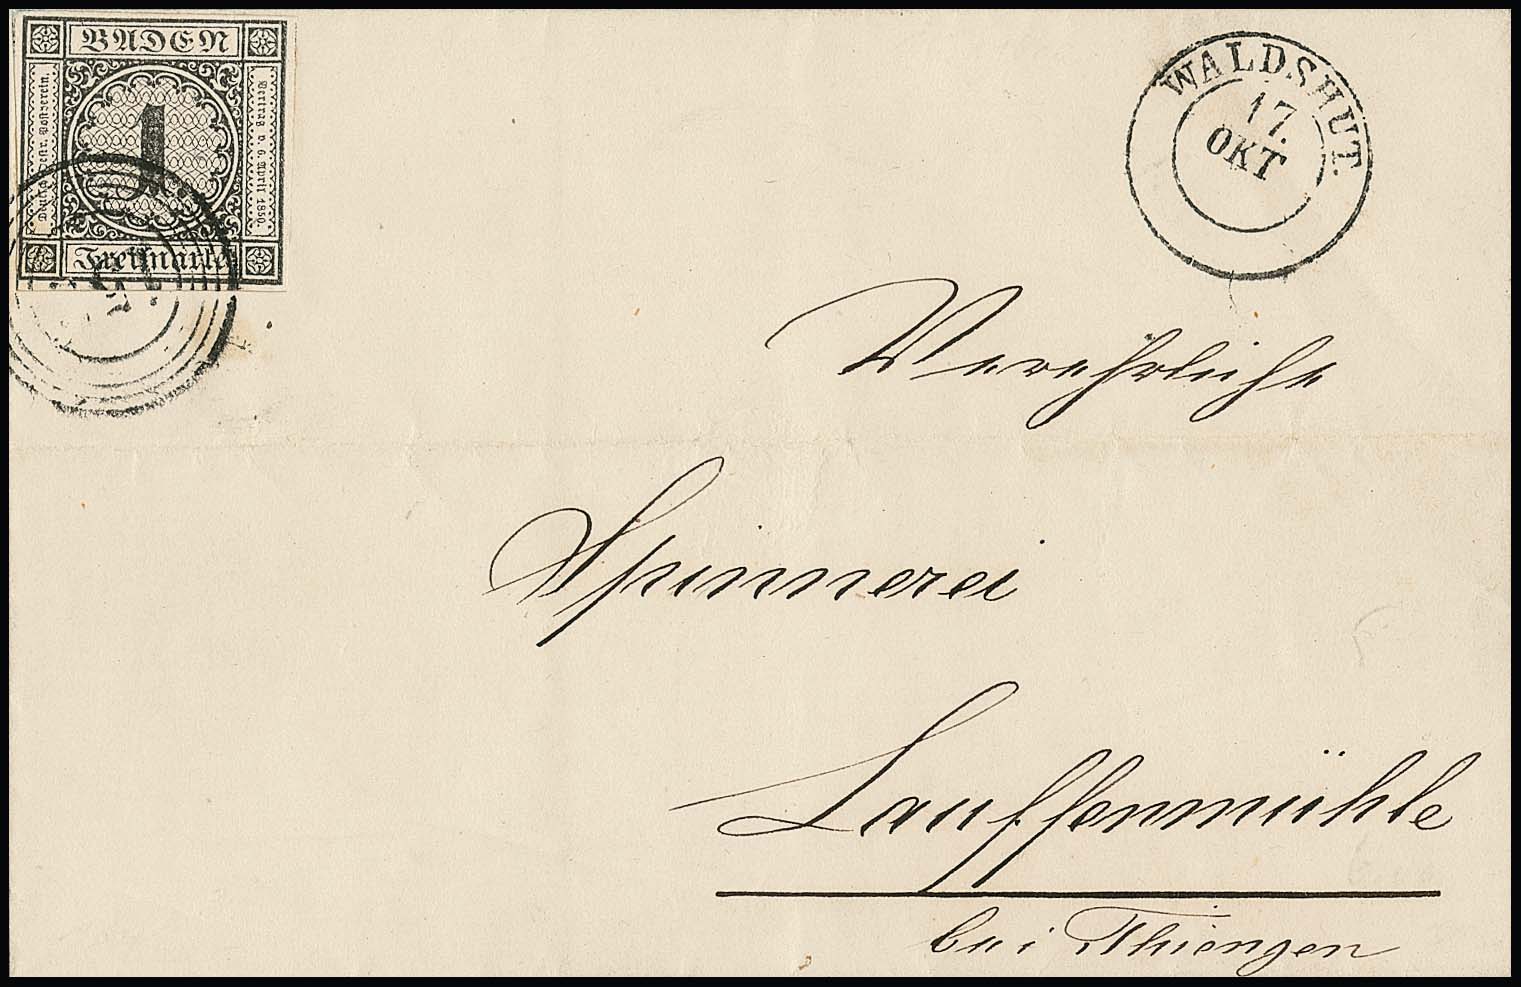 BADEN
Deutsch-Oestr. Postverein.
1
Vertrag v. 6. April 1850.
Freimarke
WALDSHUT.
17.
OKT
Verehrliche
Spinnerei
Lauffenmühle
bei Thiengen